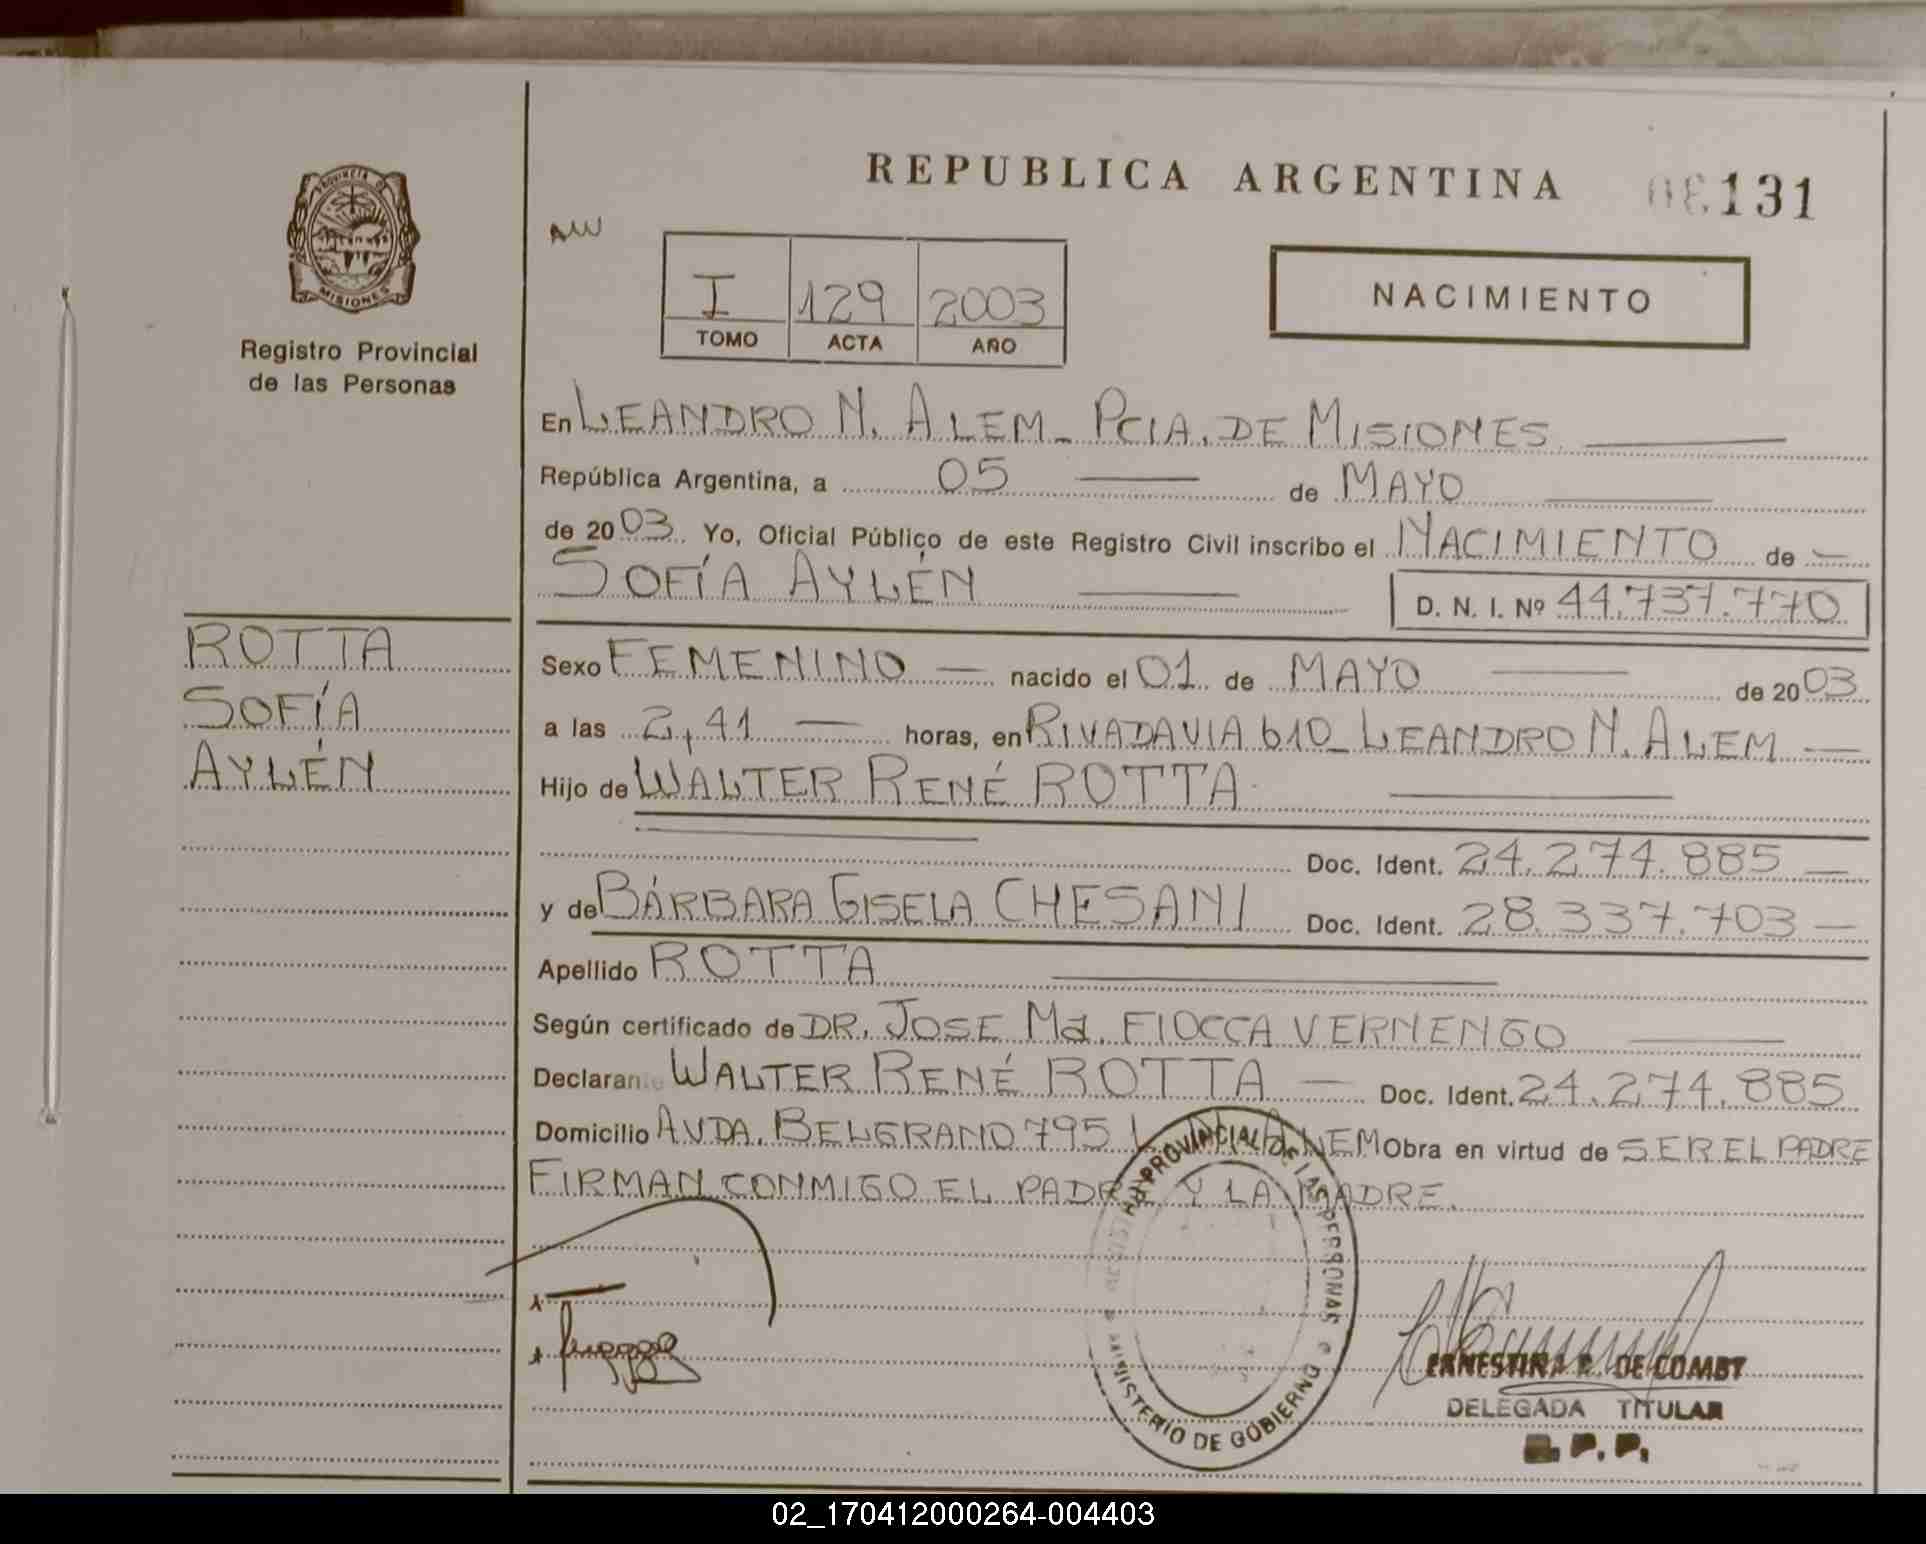 REPUBLICA ARGENTINA
131
PROVINCIA DE
MISIONES
Registro Provincial
de las Personas
I 129 2003
TOMO ACTA AÑO
NACIMIENTO
En LEANDRO N. ALEM_ PCIA. DE MISIONES
República Argentina, a 05 de MAYO
de 2003 Yo, Oficial Público de este Registro Civil inscribo el NACIMIENTO de
SOFÍA AYLÉN D. N. I. Nº 44.737.770
ROTTA
SOFÍA
AYLÉN
Sexo FEMENINO nacido el 01 de MAYO de 2003
a las 2,41 horas, en RIVADAVIA 610_ LEANDRO N. ALEM
Hijo de WALTER RENÉ ROTTA
Doc. Ident. 24.274.885
y de BÁRBARA GISELA CHESANI Doc. Ident. 28.337.703
Apellido ROTTA
Según certificado de DR. JOSE Ma. FIOCCA VERNENGO
Declarante WALTER RENÉ ROTTA Doc. Ident. 24.274.885
Domicilio AVDA. BELGRANO 795 L. N. ALEM Obra en virtud de SER EL PADRE
FIRMAN CONMIGO EL PADRE Y LA MADRE.
REGISTRO PROVINCIAL DE LAS PERSONAS
MINISTERIO DE GOBIERNO
DELEGADA TITULAR
02_170412000264-004403